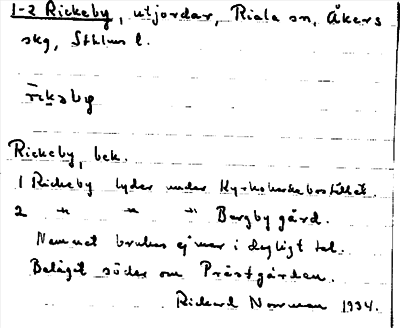 1-2 Rickeby, utjordar, Riala sn, Åkers
skg, Sthlms l.
rikəby
Rickeby, bek.
1 Rickeby lyder under Kyrkoherdebostället.
2 " " " Bergby gård.
Namnet brukas ej mer i dagligt tal.
Beläget söder om Prästgården.
Rickard Norrman 1934.